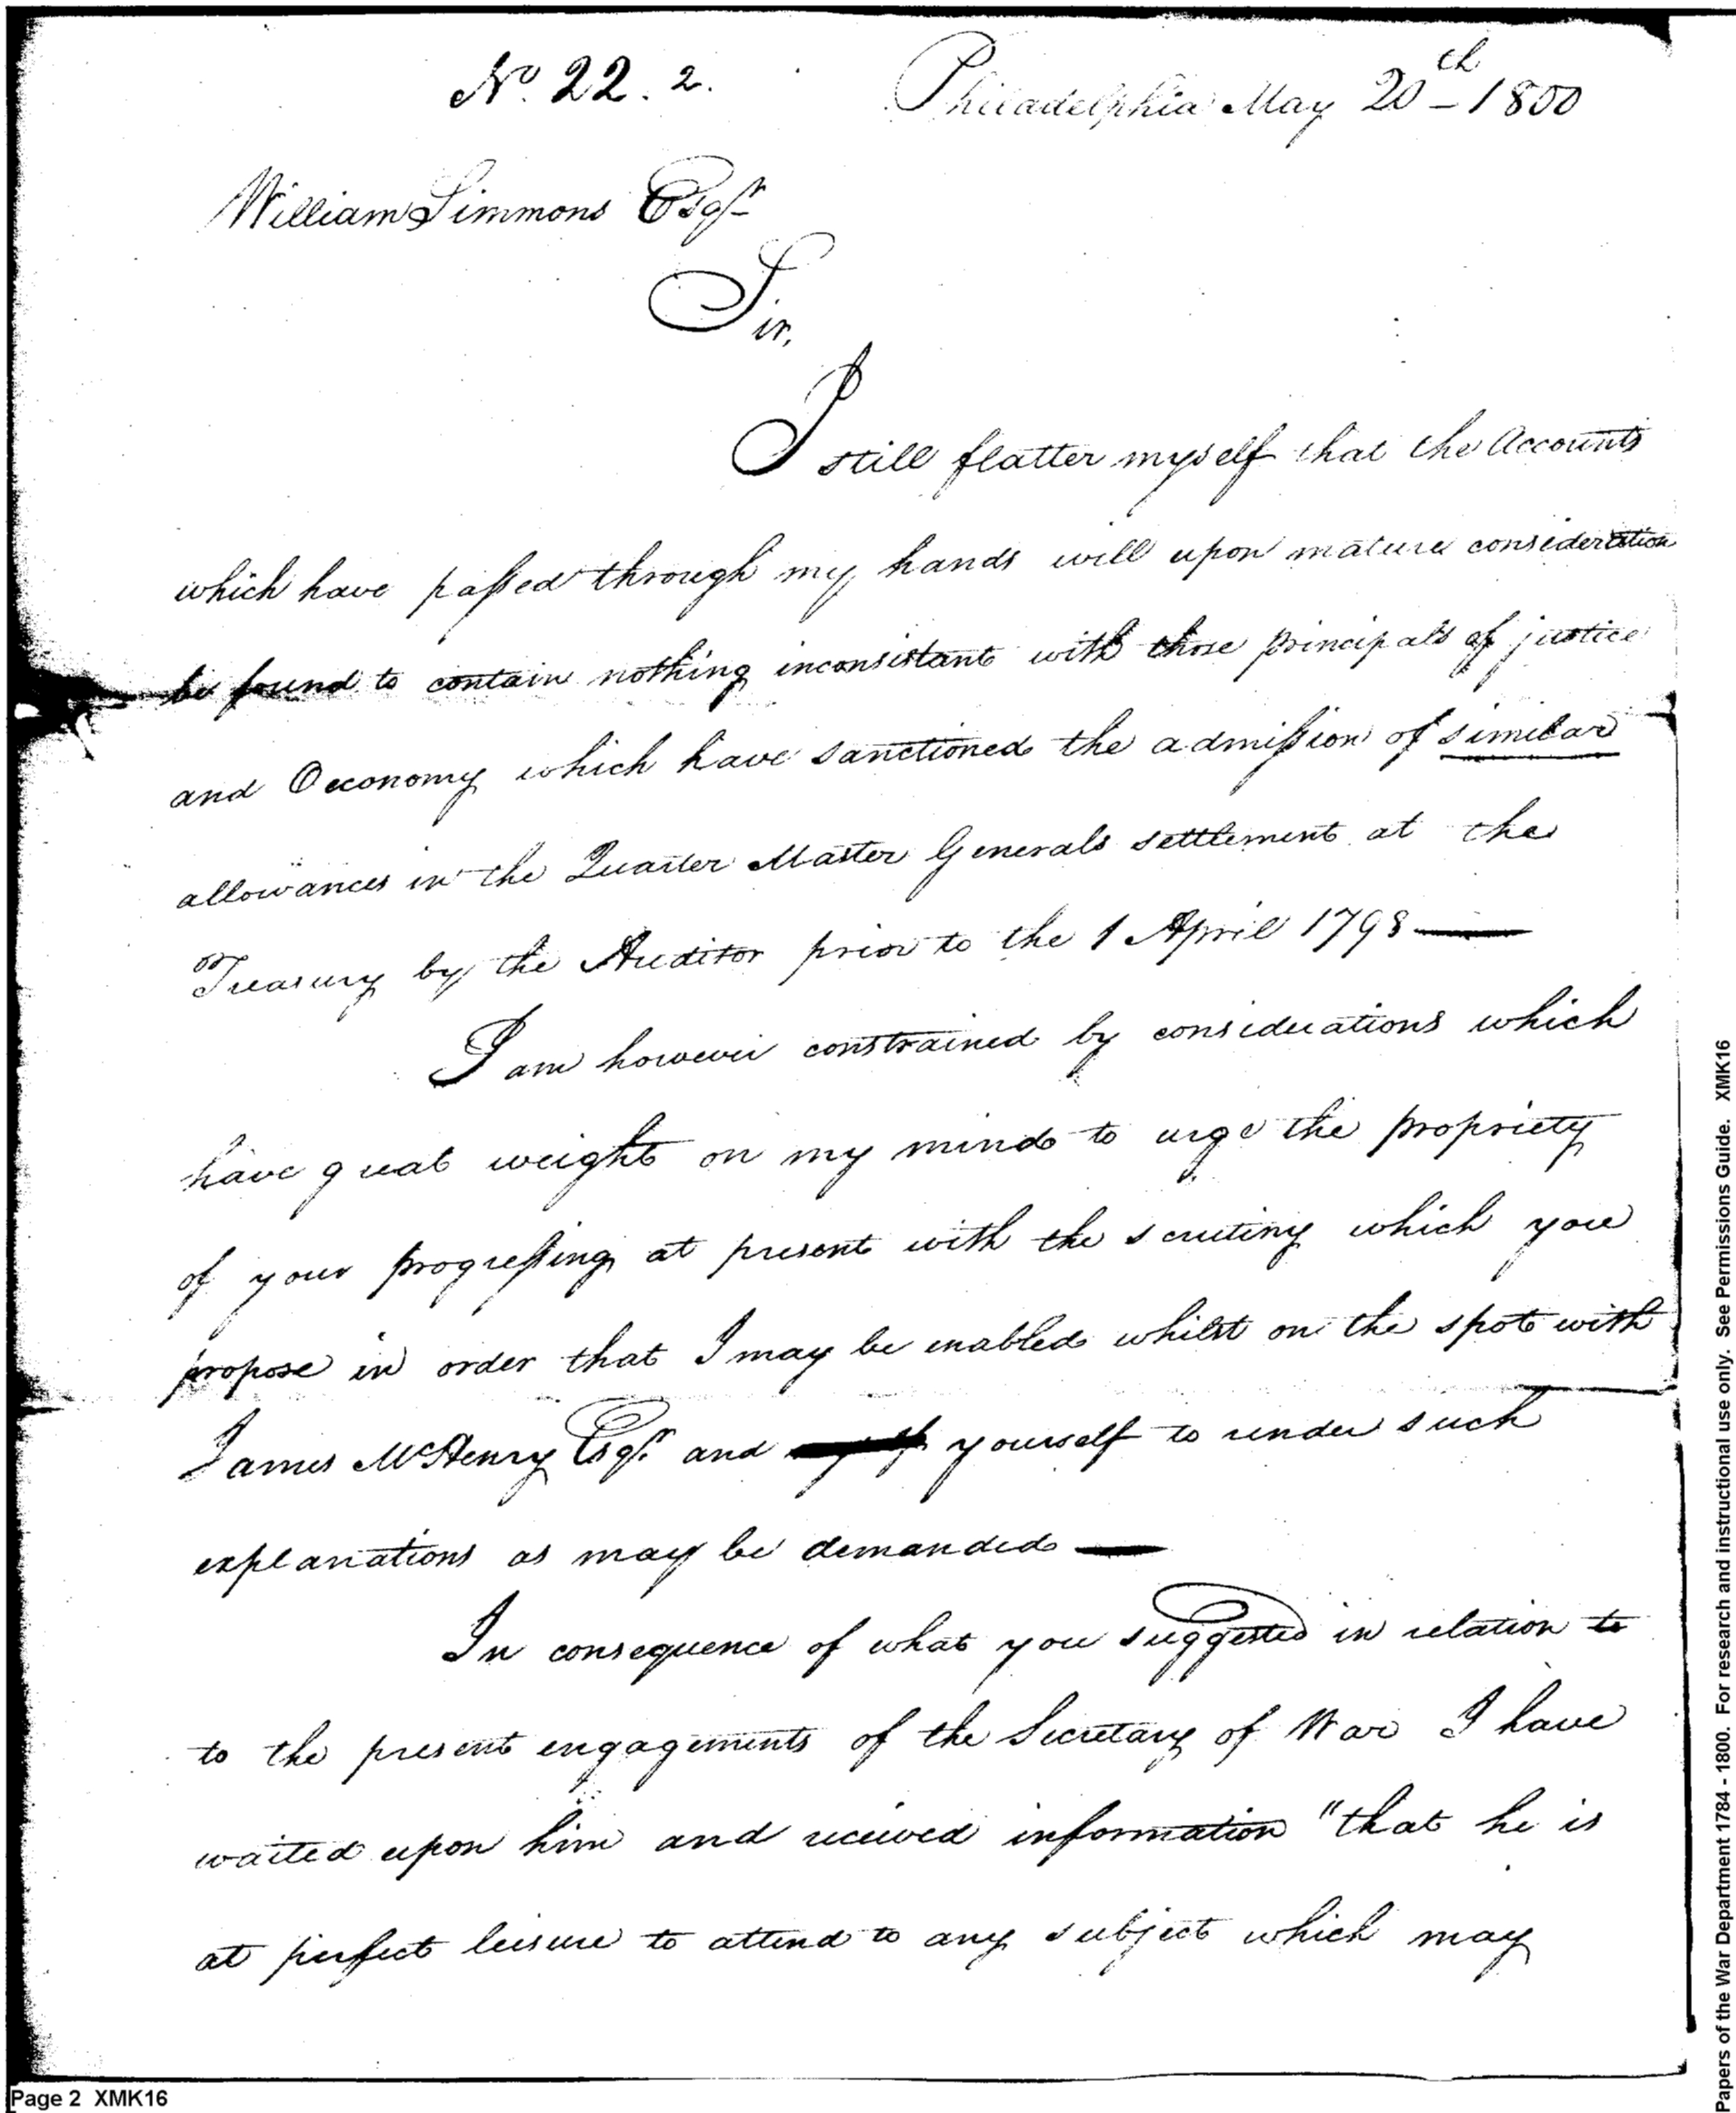 No. 22. 2.
Philadelphia May 20th 1800
William Simmons Esqr
Sir,
I still flatter myself that the Accounts
which have passed through my hands will upon mature consideration
be found to contain nothing inconsistant with those principals of justice
and Oeconomy which have sanctioned the admission of similar
allowances in the Quarter Master Generals settlement at the
Treasury by the Auditor prior to the 1 April 1798
I am however constrained by considerations which
have great weight on my mind to urge the propriety
of your progressing at present with the scrutiny which you
propose in order that I may be enabled whilst on the spot with
James McHenry Esqr. and yourself to render such
explanations as may be demanded
In consequence of what you suggested in relation to
to the present engagements of the Secretary of War I have
waited upon him and received information "that he is
at perfect leisure to attend to any subject which may
Page 2 XMK16
Papers of the War Department 1784 - 1800. For research and instructional use only. See Permissions Guide. XMK16